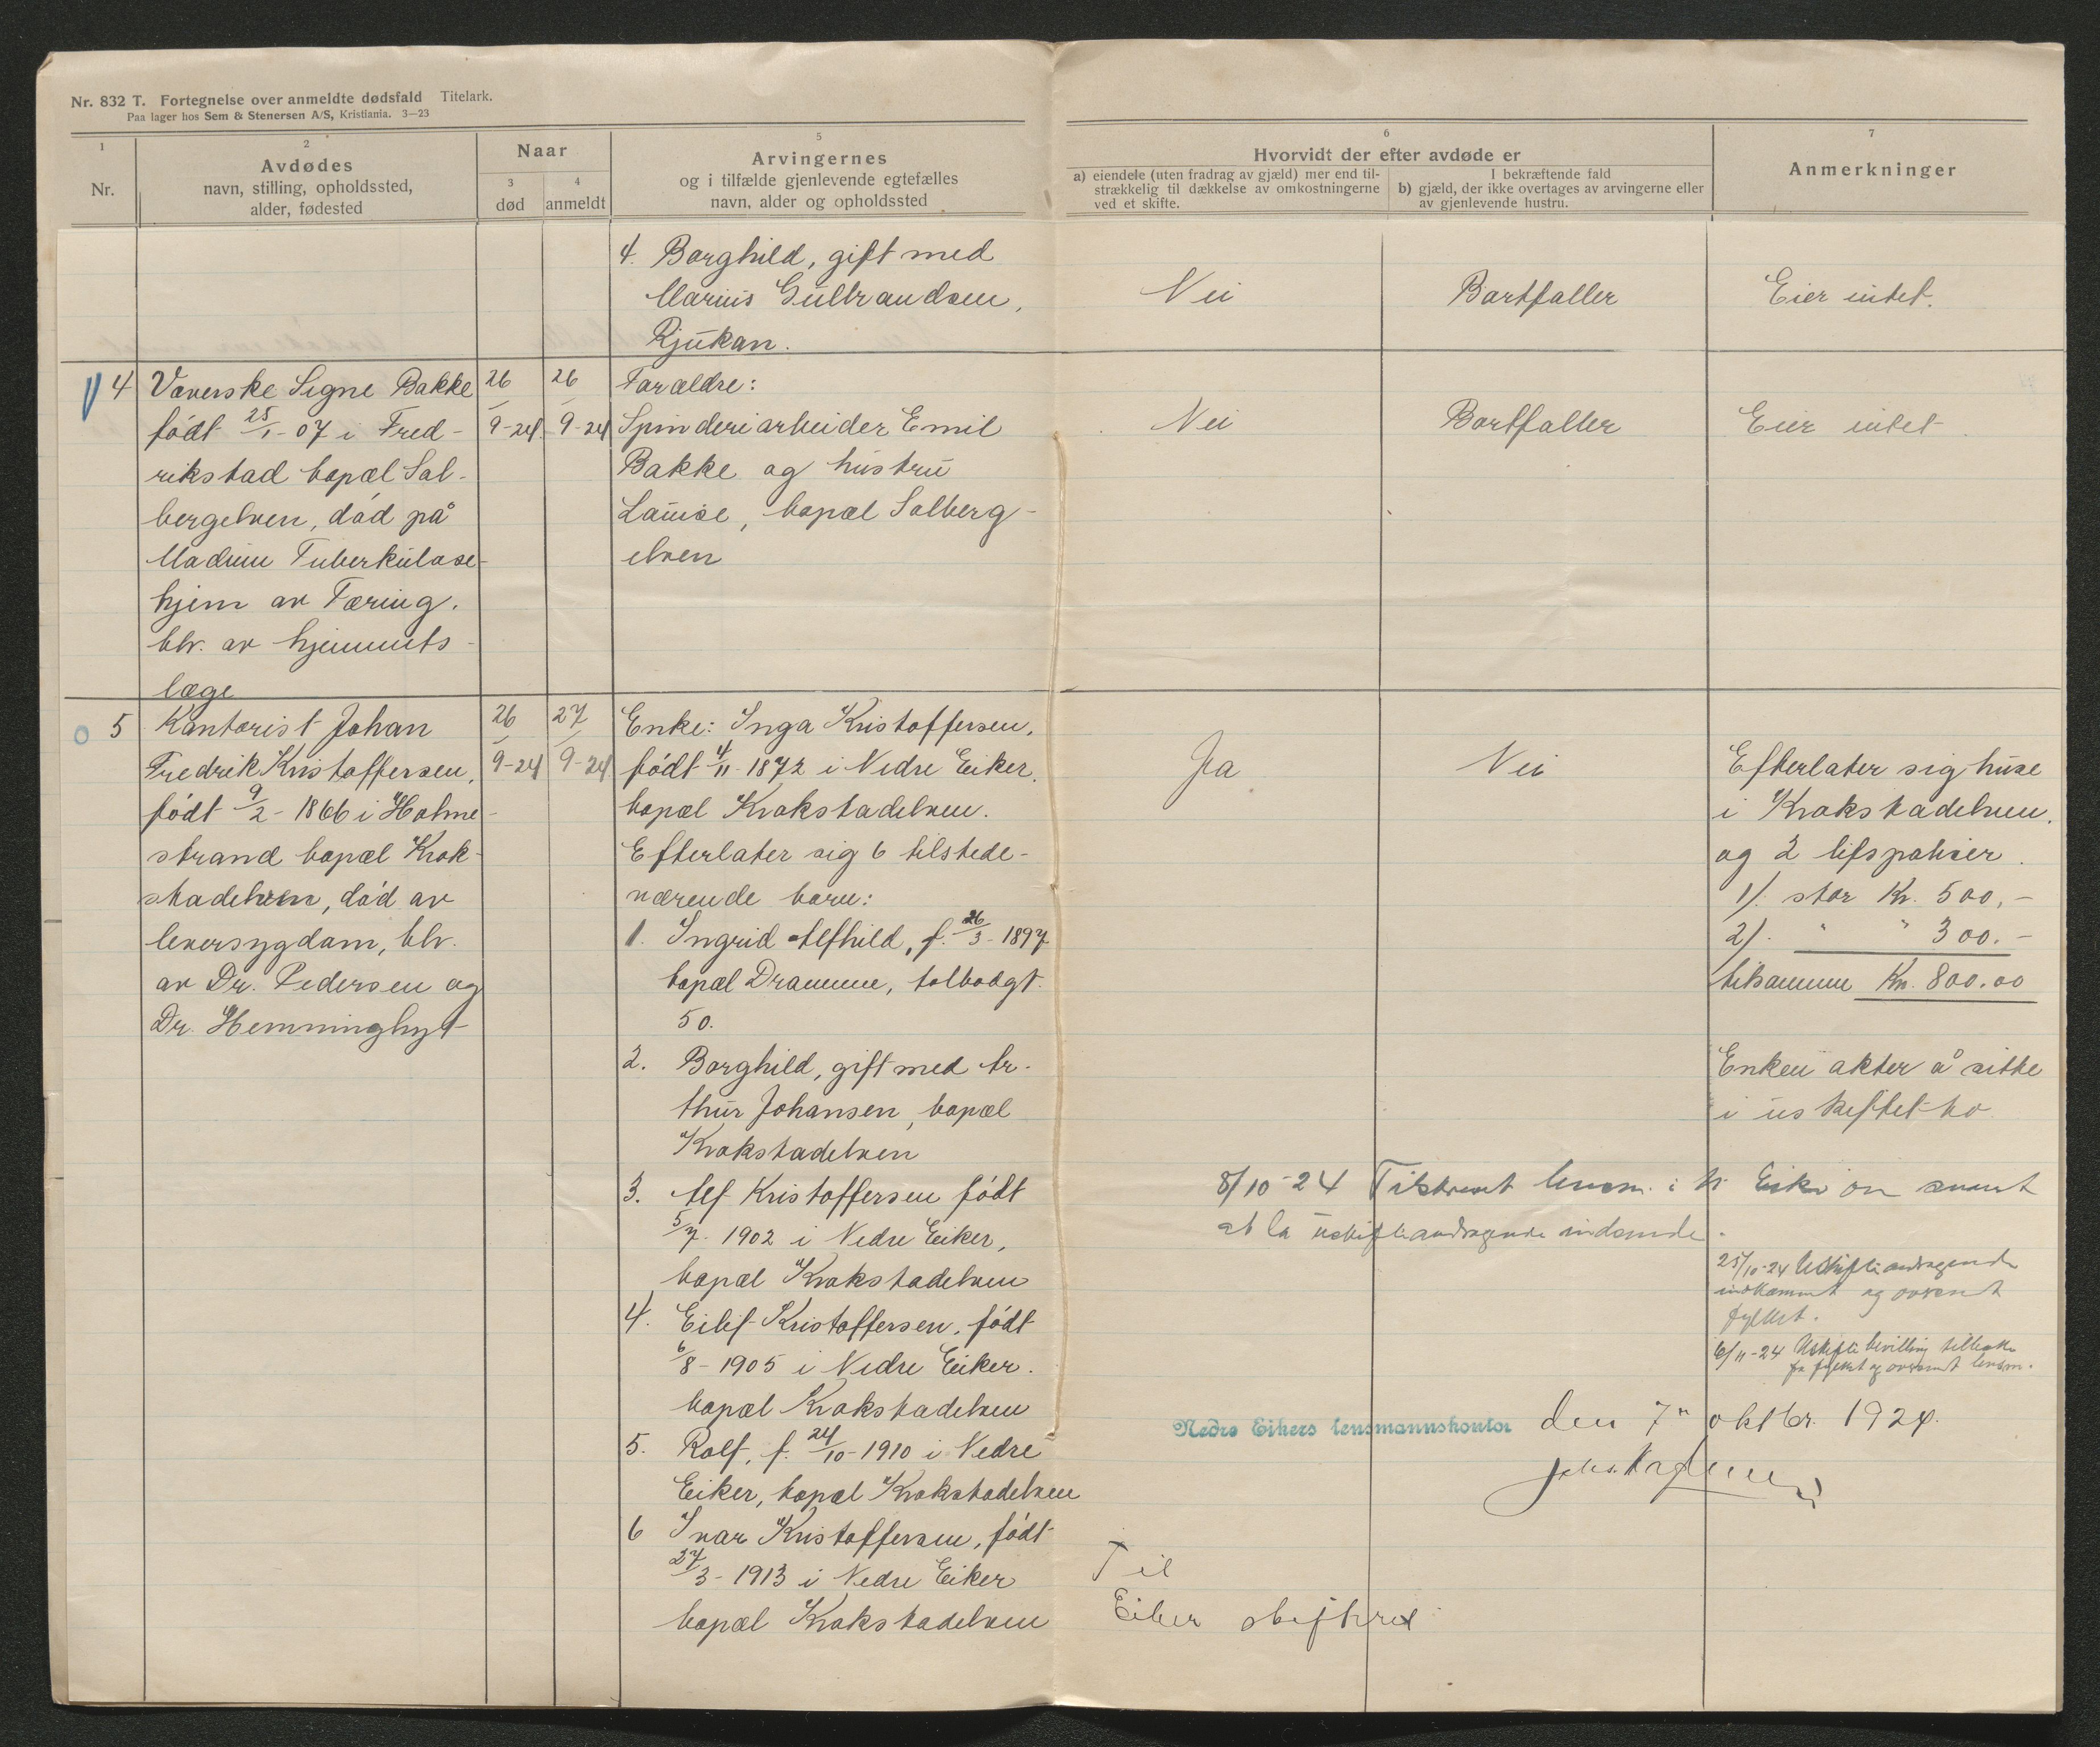 Nr. 832 T. Fortegnelse over anmeldte dødsfald Titelark.
Paa lager hos Sem & Stenersen A/S, Kristiania. 3—23
1
Nr.
2
Avdødes
navn, stilling, opholdssted,
alder, fødested
Naar
3
død
4
anmeldt
5
Arvingernes
og i tilfælde gjenlevende egtefælles
navn, alder og opholdssted
6
Hvorvidt der efter avdøde er
a) eiendele (uten fradrag av gjæld) mer end til-
strækkelig til dækkelse av omkostningerne
ved et skifte.
I bekræftende fald
b) gjæld, der ikke overtages av arvingerne eller
av gjenlevende hustru.
7
Anmerkninger
4. Borghild, gift med
Marius Gulbrandsen,
Rjukan.
Nei
Bortfaller
Eier intet.
4
Væverske Signe Bakke
født 25/1-07 i Fred-
rikstad bopæl Sol-
bergelven, død på
Modum Tuberkulose-
hjem av Tæring.
blv. av hjemmets-
læge
26/9-24
26/9-24
Forældre:
Spinderiarbeider Emil
Bakke og hustru
Louise, bopæl Solberg-
elven
Nei
Bortfaller
Eier intet
5
Kontorist Johan
Fredrik Kristoffersen,
født 9/2-1866 i Holme-
strand bopæl Krok-
stadelven, død av
leversygdom, blv.
av Dr. Pedersen og
Dr. Hemminghyt
26/9-24
27/9-24
Enke: Inga Kristoffersen,
født 4/11-1872 i Nedre Eiker,
bopæl Krokstadelven.
Efterlater sig 6 tilstede-
værende barn:
1. Ingrid Alfhild, f. 26/3-1897
bopæl Drammen, tolbodgt.
50.
2. Borghild, gift med Ar-
thur Johansen, bopæl
Krokstadelven
3. Alf Kristoffersen født
5/7-1902 i Nedre Eiker,
bopæl Krokstadelven
4. Eilif Kristoffersen, født
6/8-1905 i Nedre Eiker.
bopæl Krokstadelven
5. Rolf, f. 24/10-1910 i Nedre
Eiker, bopæl Krokstadelven
6 Ivar Kristoffersen, født
27/3-1913 i Nedre Eiker
bopæl Krokstadelven
Ja
Nei
Efterlater sig huse
i Krokstadelven.
og 2 lifspoliser.
1/. stor Kr. 500,-
2/. " " 300.-
tilsammen Kr. 800.00
Enken akter å sitte
i uskiftet bo
8/10-24 Tilskrevet lensm. i N. Eiker om snarest
at la uskifteandragende indsende.
25/10-24 Uskifteandragende
indkommet og oversendt
fylket.
6/11-24 Uskiftebevilling tilbake
fra fylket og oversendt lensm.
Nedre Eikers lensmannskontor den 7" oktbr. 1924.
Til
Eiker skifteret